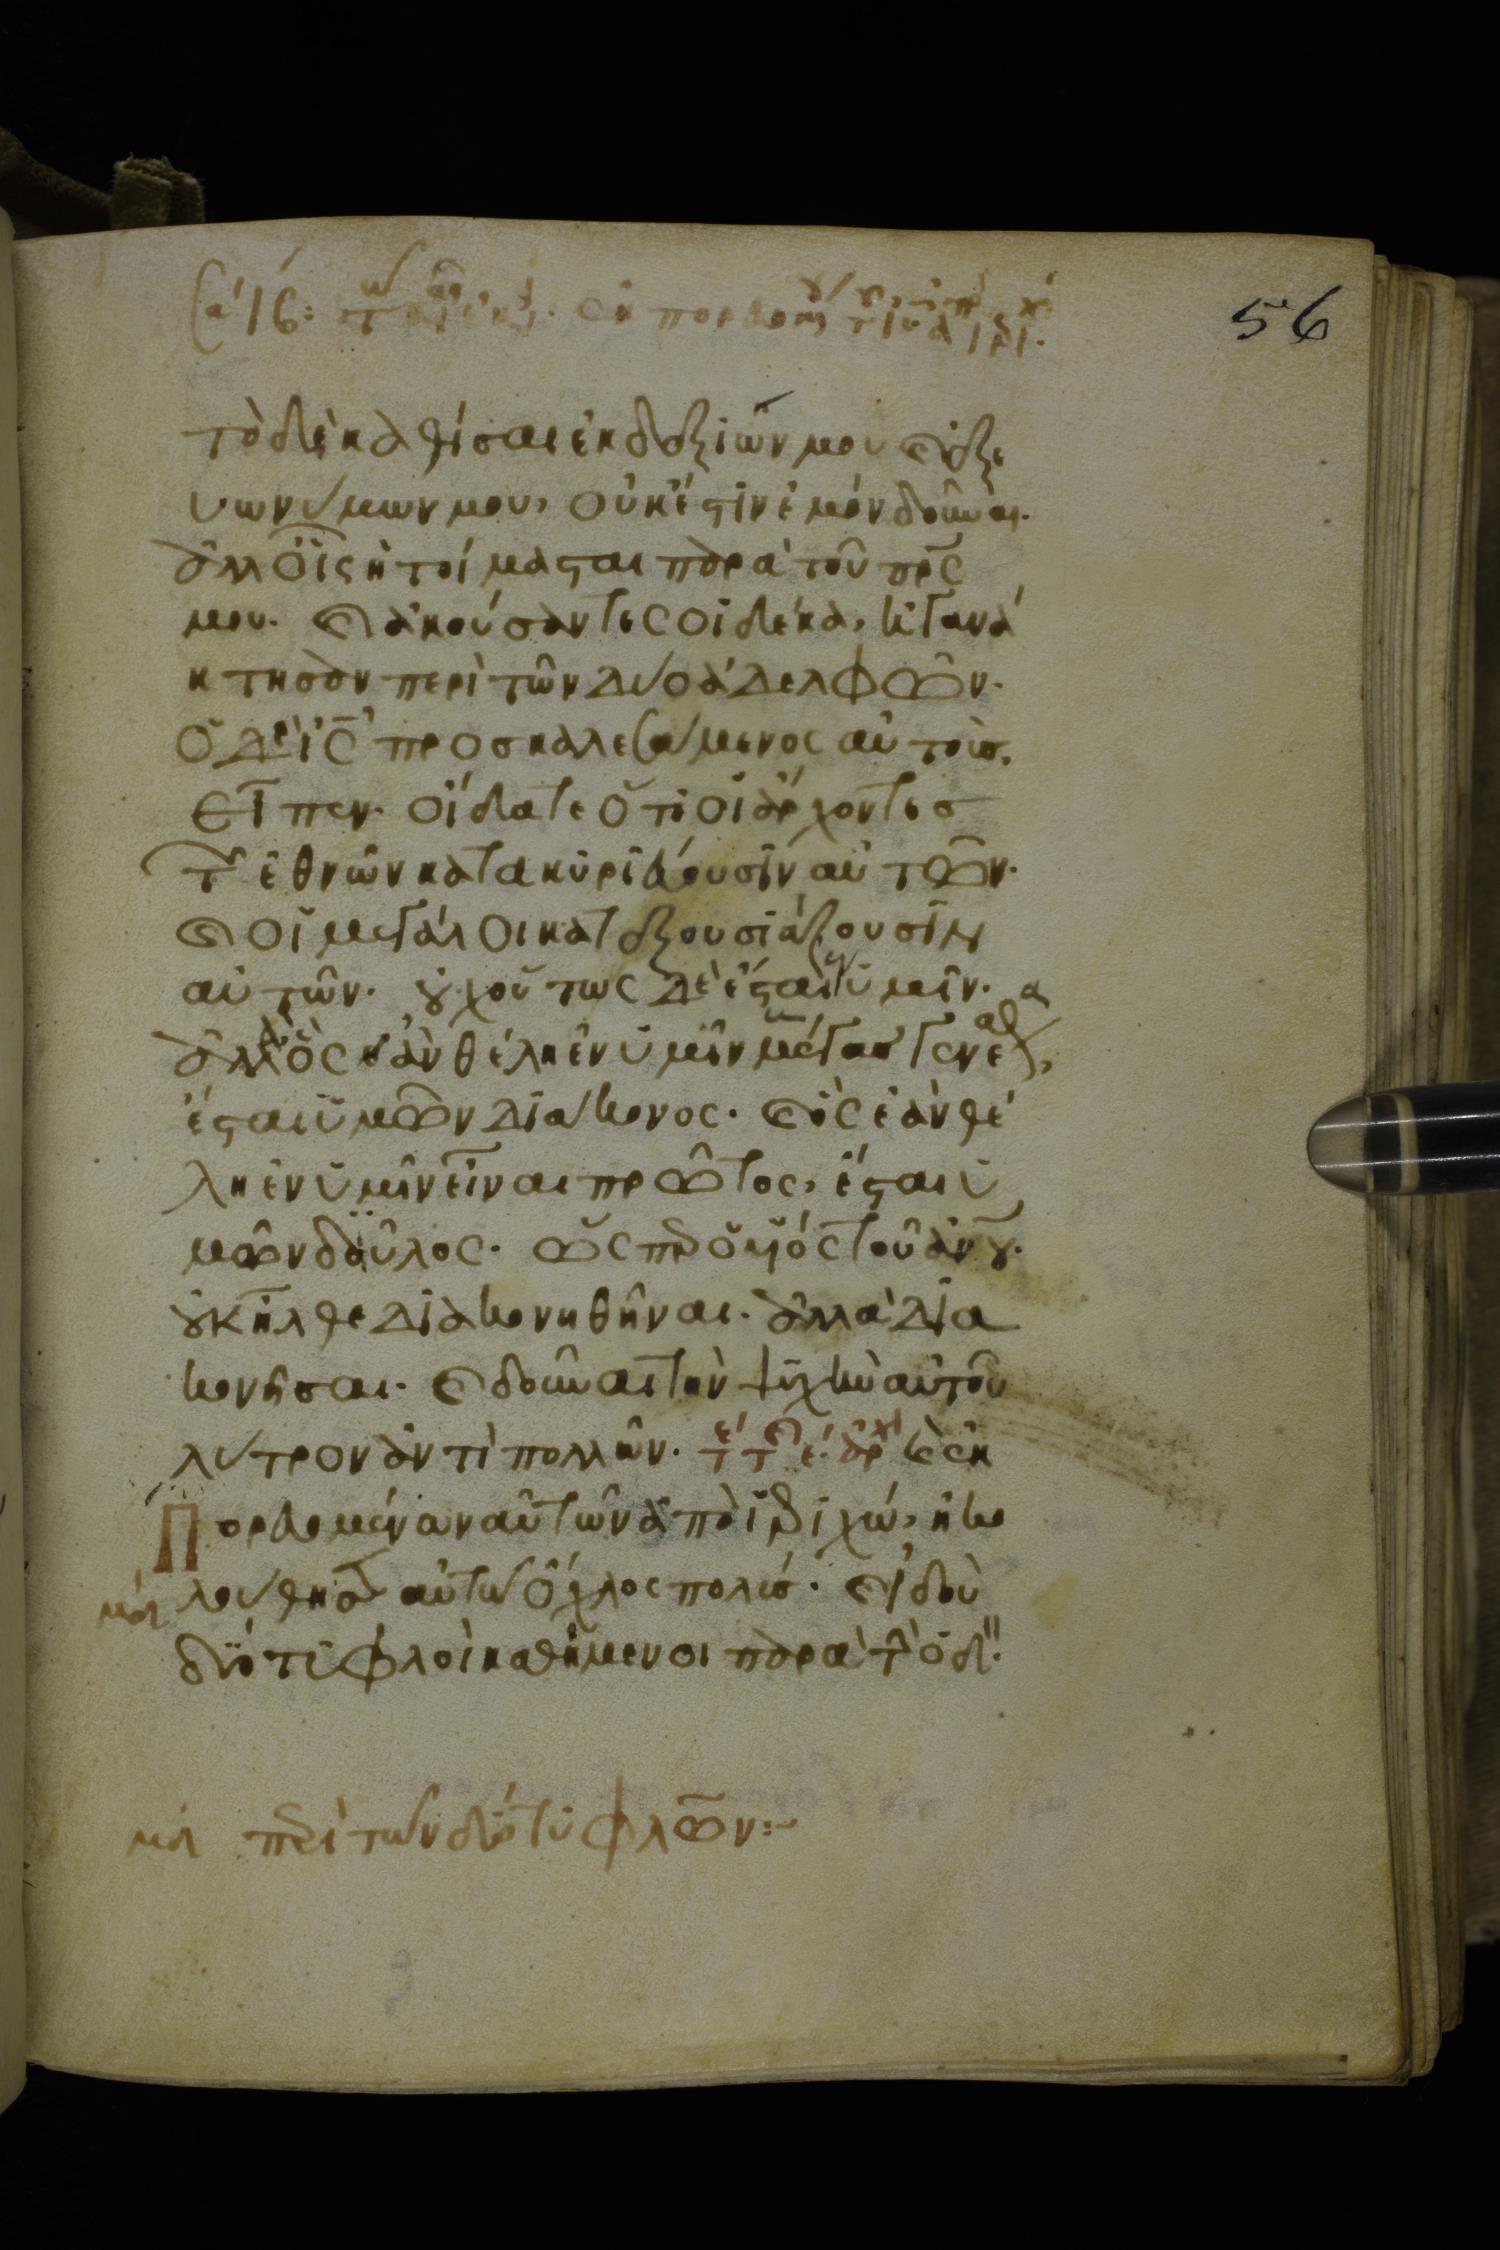 56
τὸ δὲ καθίσαι ἐκ δεξιῶν μου καὶ ἐξ ε
υωνύμων μου, οὐκ ἔστιν ἐμὸν δοῦναι.
ἀλλ οἷς ἡτοίμασται παρὰ τοῦ πρς
μου. καὶ ἀκούσαντες οἱ δέκα, ἠγανά
κτησαν περὶ τῶν δύο ἀδελφῶν.
ὁ δὲ ις προσκαλεσάμενος αὐτοὺς,
εἶπεν. οἴδατε ὅτι οἱ ἄρχοντες
τῶν ἐθνῶν κατακυριεύουσιν αὐτῶν.
καὶ οἱ μεγάλοι κατεξουσιάζουσιν
αὐτῶν. οὐχ οὕτως δὲ ἔσται ἐν ὑμῖν.
ἀλλ ὃς ἐὰν θέλη ἐν ὑμῖν μέγας γενέσθαι,
ἔσται ὑμῶν διάκονος. καὶ ὃς ἐὰν θέ
λη ἐν ὑμῖν εἶναι πρῶτος, ἔσται ὑ
μῶν δοῦλος. ὥσπερ ὁ υἱὸς τοῦ ἀνου.
οὐκ ἦλθε διακονηθῆναι. ἀλλὰ δια
κονῆσαι. καὶ δοῦναι τὴν ψυχὴν αὐτοῦ
λύτρον ἀντὶ πολλῶν. καὶ ἐκ
πορευομένων αὐτῶν ἀπὸ ἱεριχώ, ἠκο
λούθησαν αὐτῶ ὄχλος πολύς. καὶ ἰδοὺ
δύο τυφλοὶ καθήμενοι παρὰ τὴν ὁδόν.
περὶ τῶν δύο τυφλῶν: